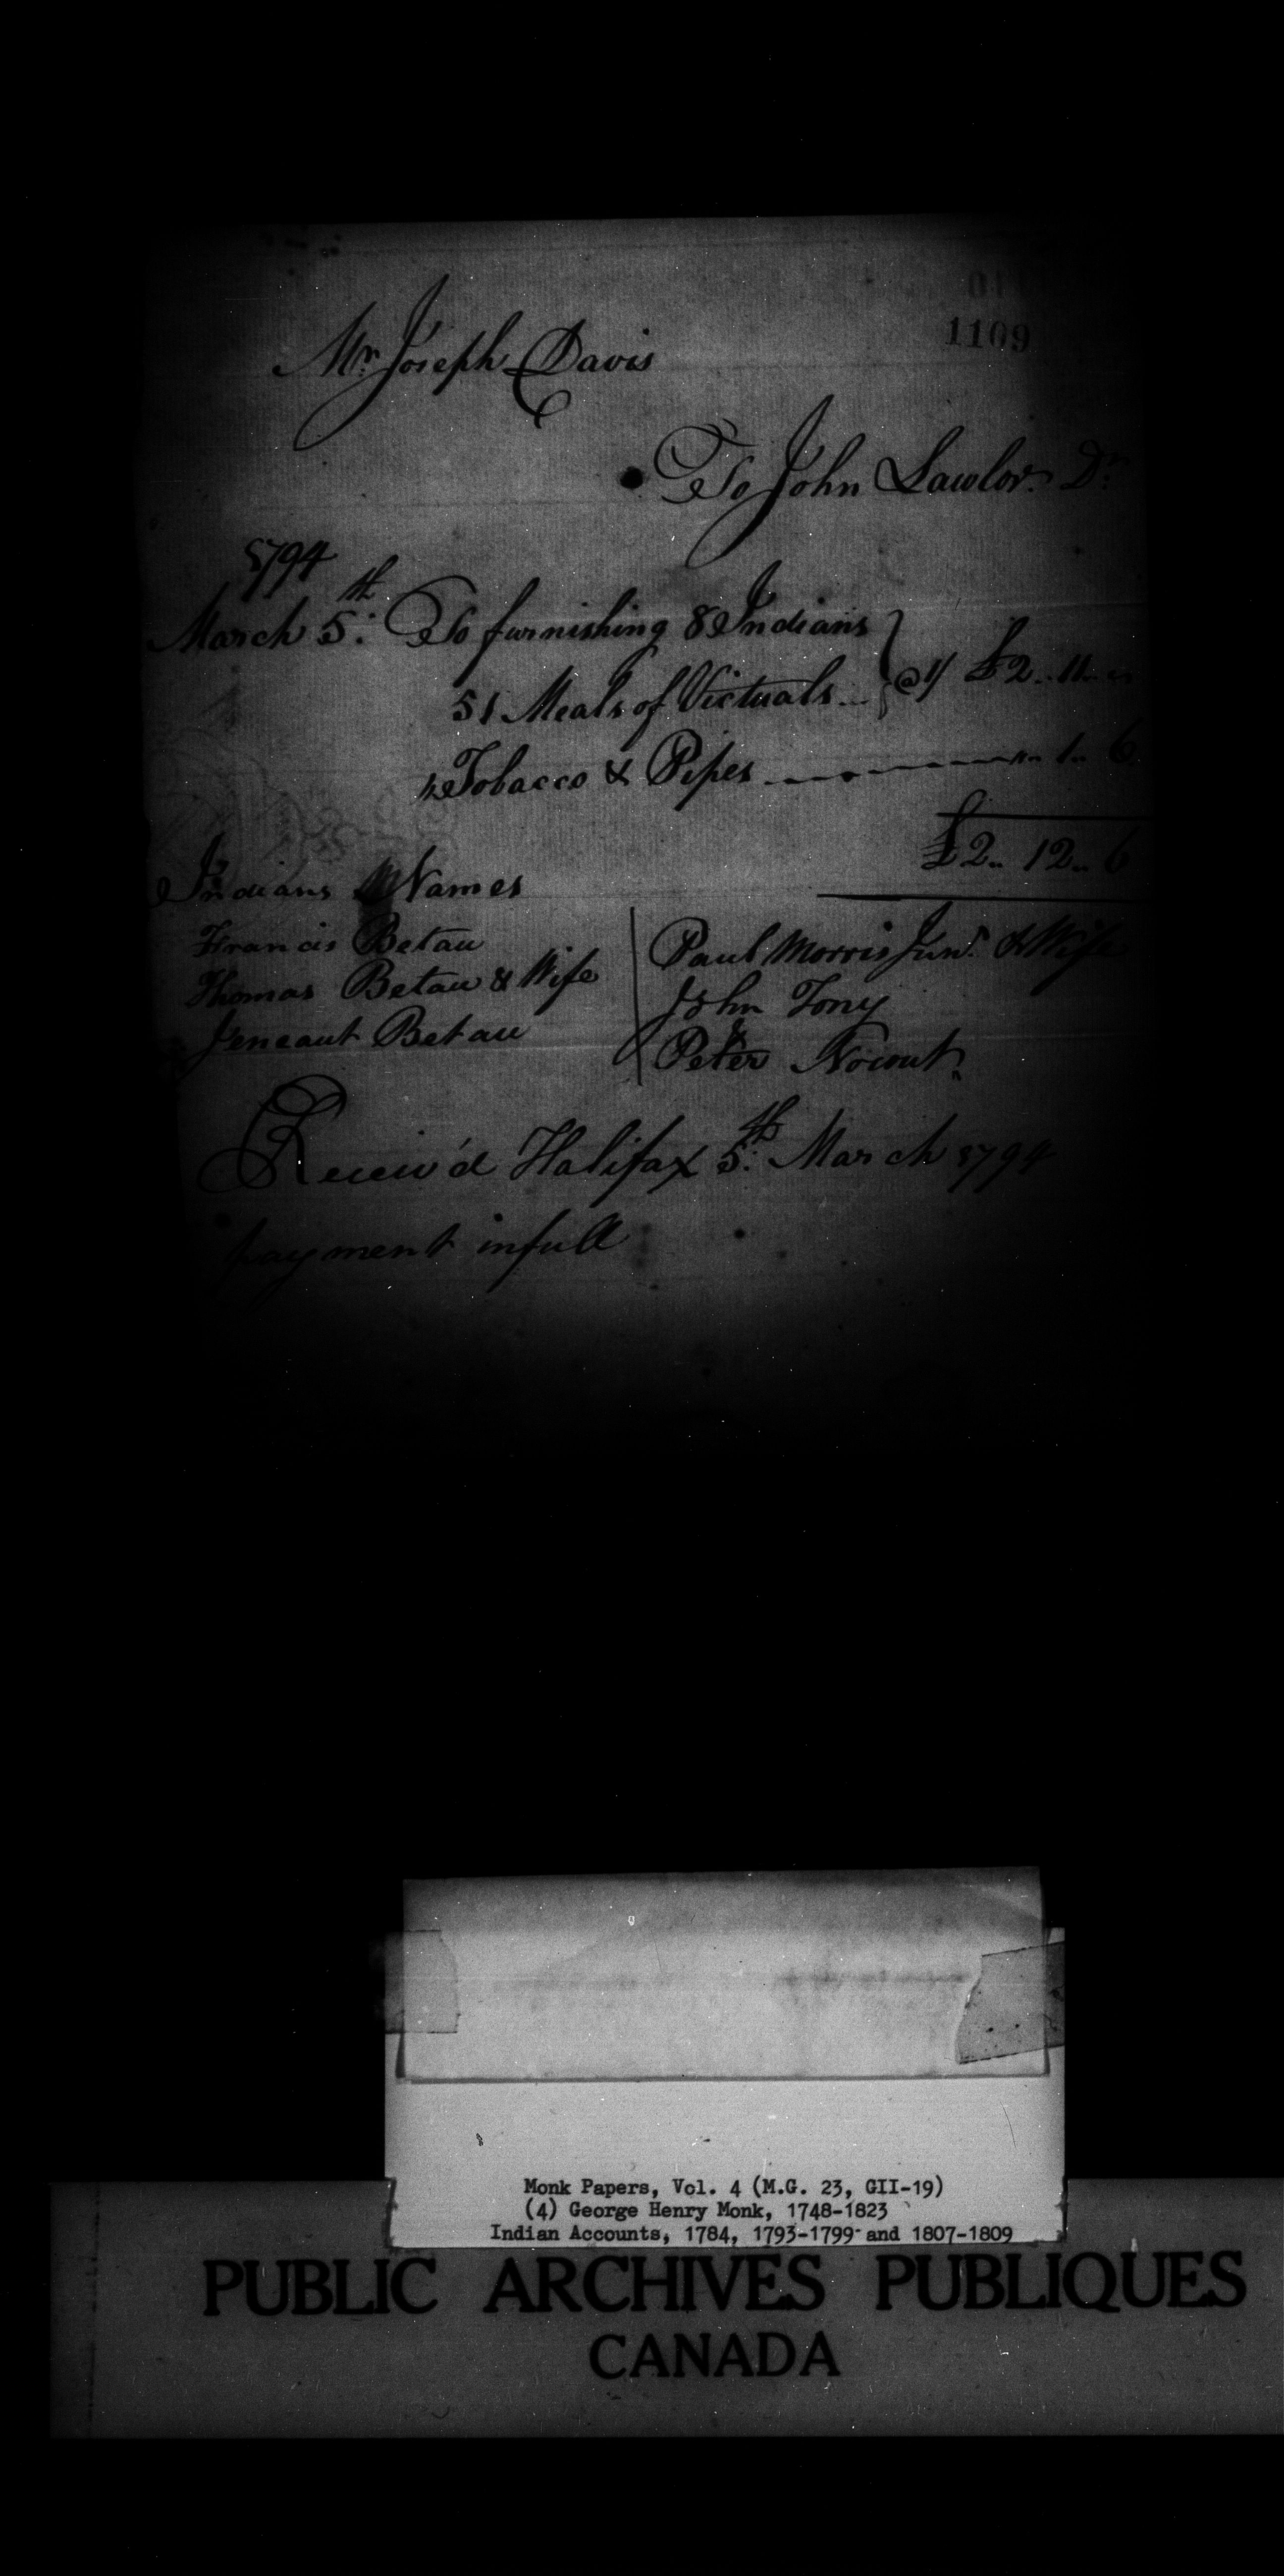 1109
Mr. Joseph Davis
To John Lawlor Dr.
1794
March 5th To furnishing 8 Indians
51 Meals of Victuals @ 1/ £2.. 11..
Tobacco & Pipes 1.. 6
£2.. 12.. 6
Indians Names
Francis Betau
Thomas Betau & Wife
Jeneaut Betau
Paul Morris Junr. & Wife
John Tony
&
Peter Nocout
Receiv'd Halifax 5th March 1794
payment in full
Monk Papers, Vol. 4 (M.G. 23, GII-19)
(4) George Henry Monk, 1748-1823
Indian Accounts, 1784, 1793-1799 and 1807-1809
PUBLIC ARCHIVES PUBLIQUES
CANADA